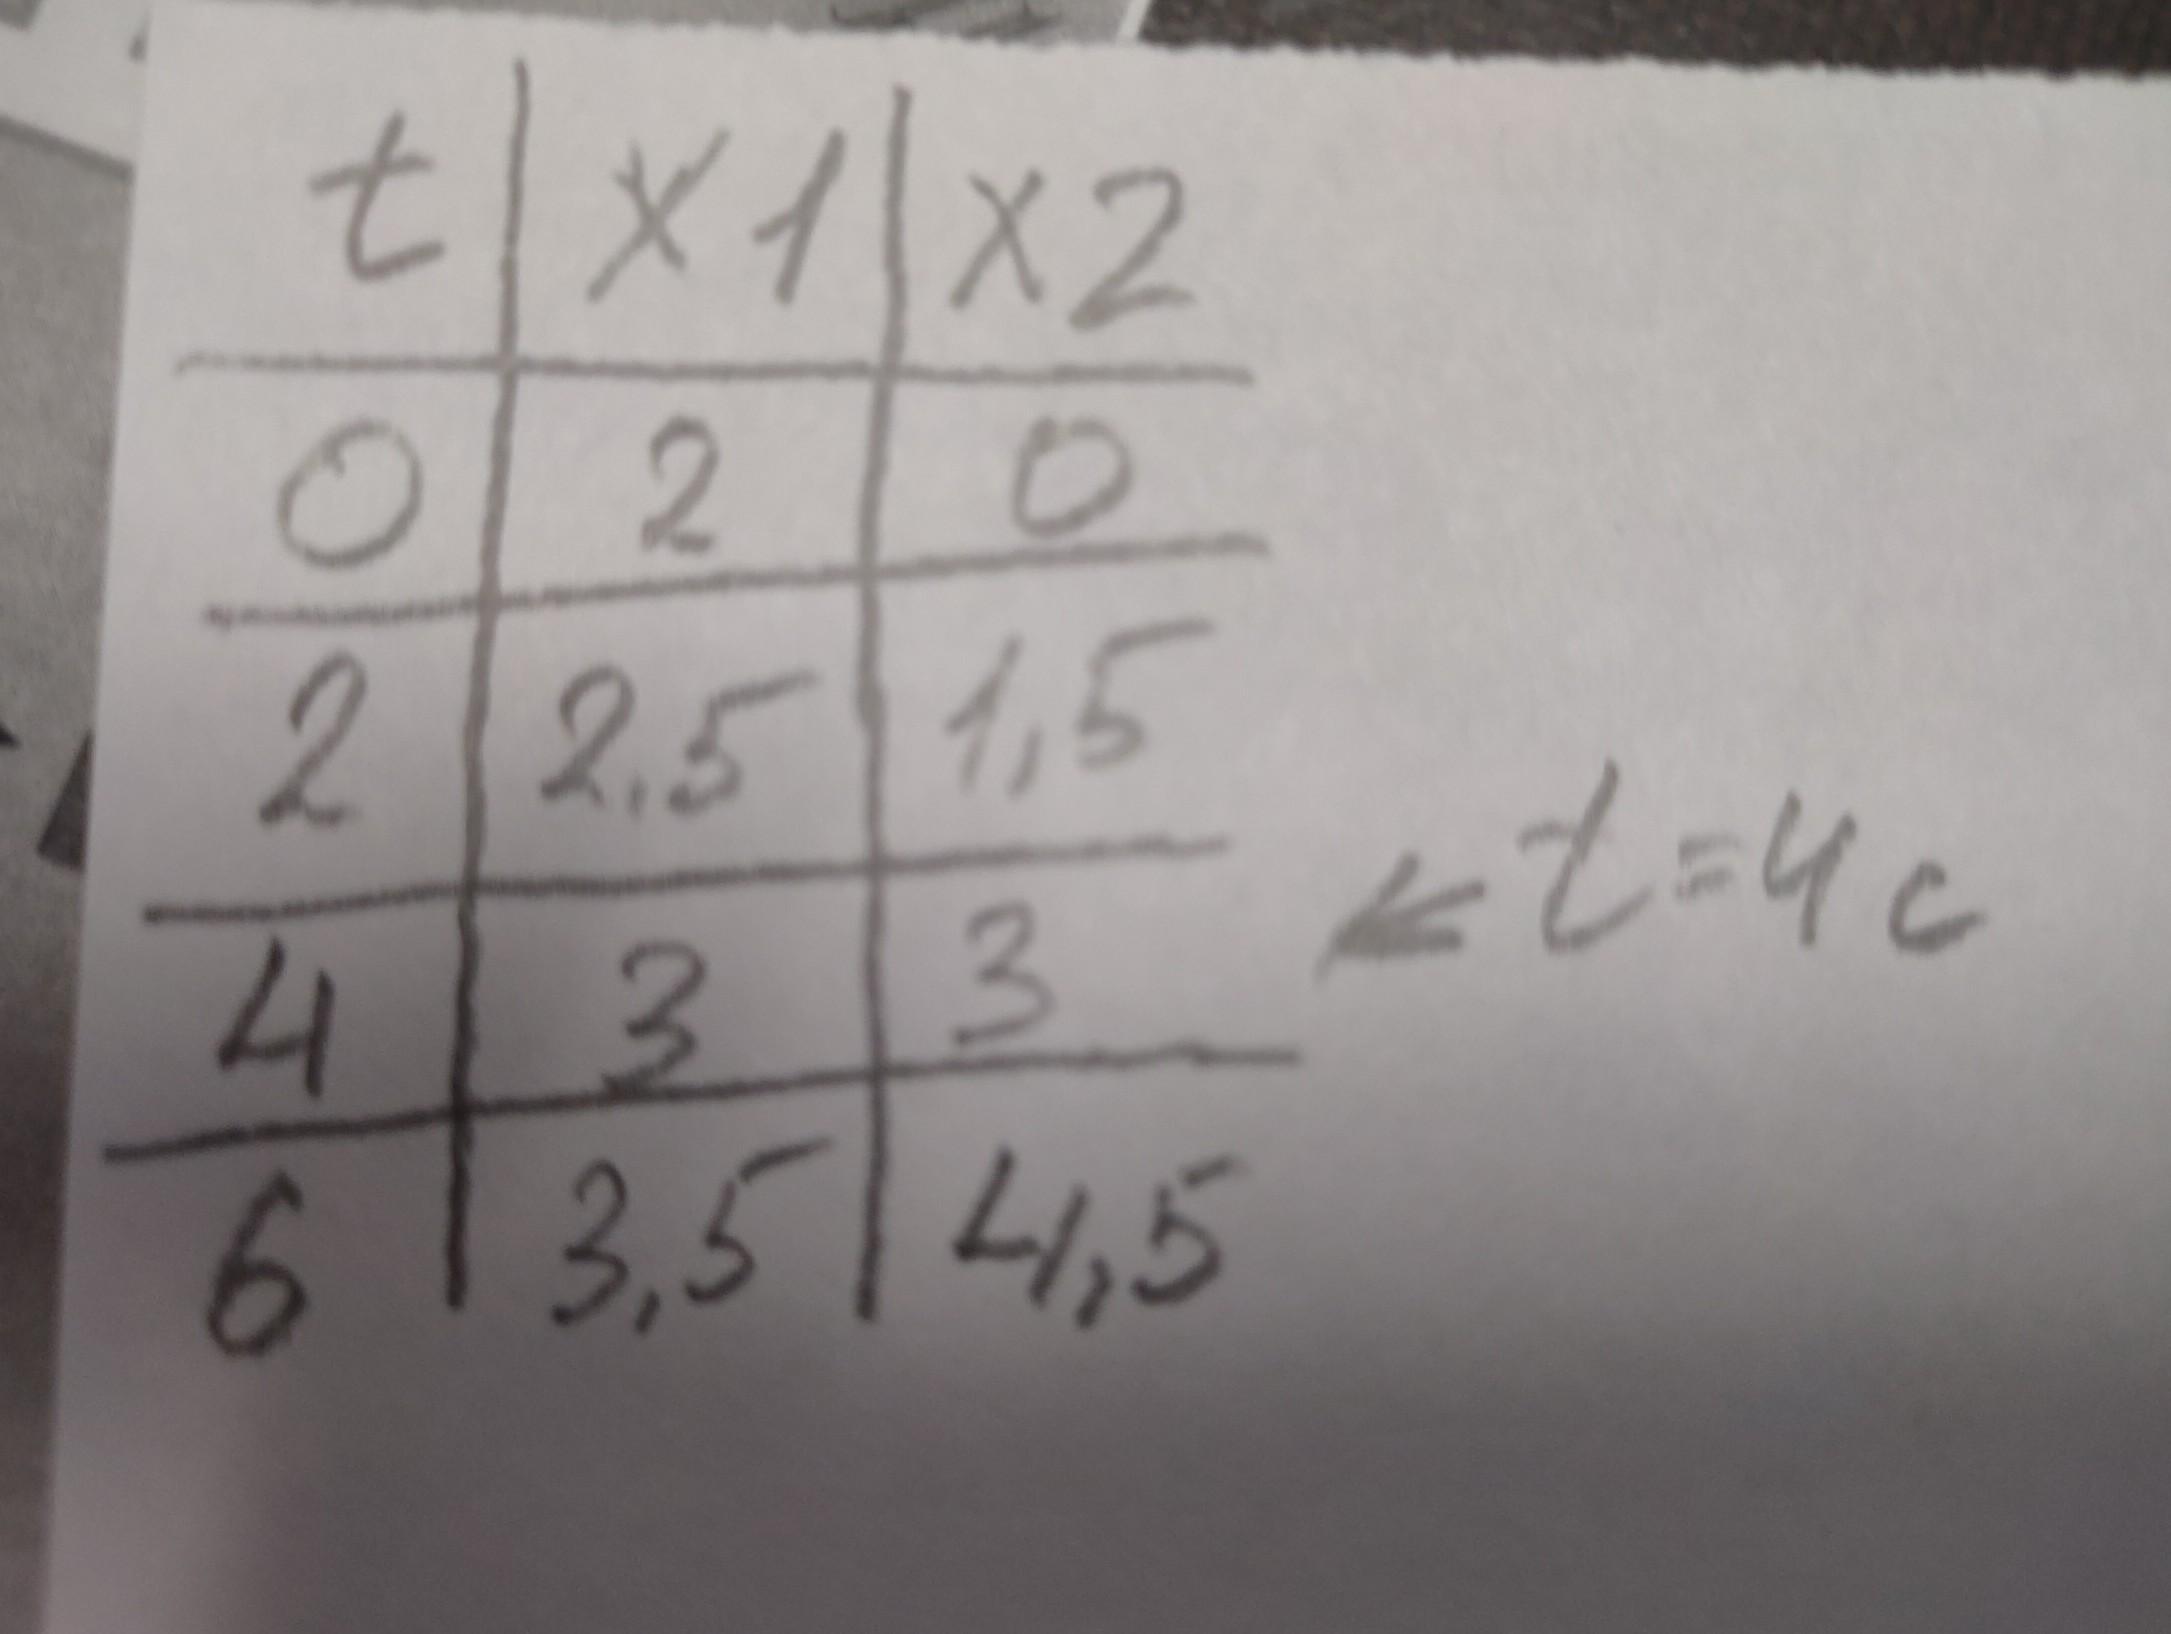 t x1 x2
0 2 0
2 2,5 1,5
4 3 3 t=4c
6 3,5 4,5